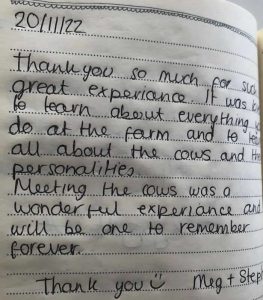 20/11/22
Thank you so much for such
great experiance. It was
to learn about everything
do at the farm and to
all about the cows and
personalities.
Meeting the cows was a
wonderful experiance and
will be one to remember
forever.
Thank you Meg + Steph